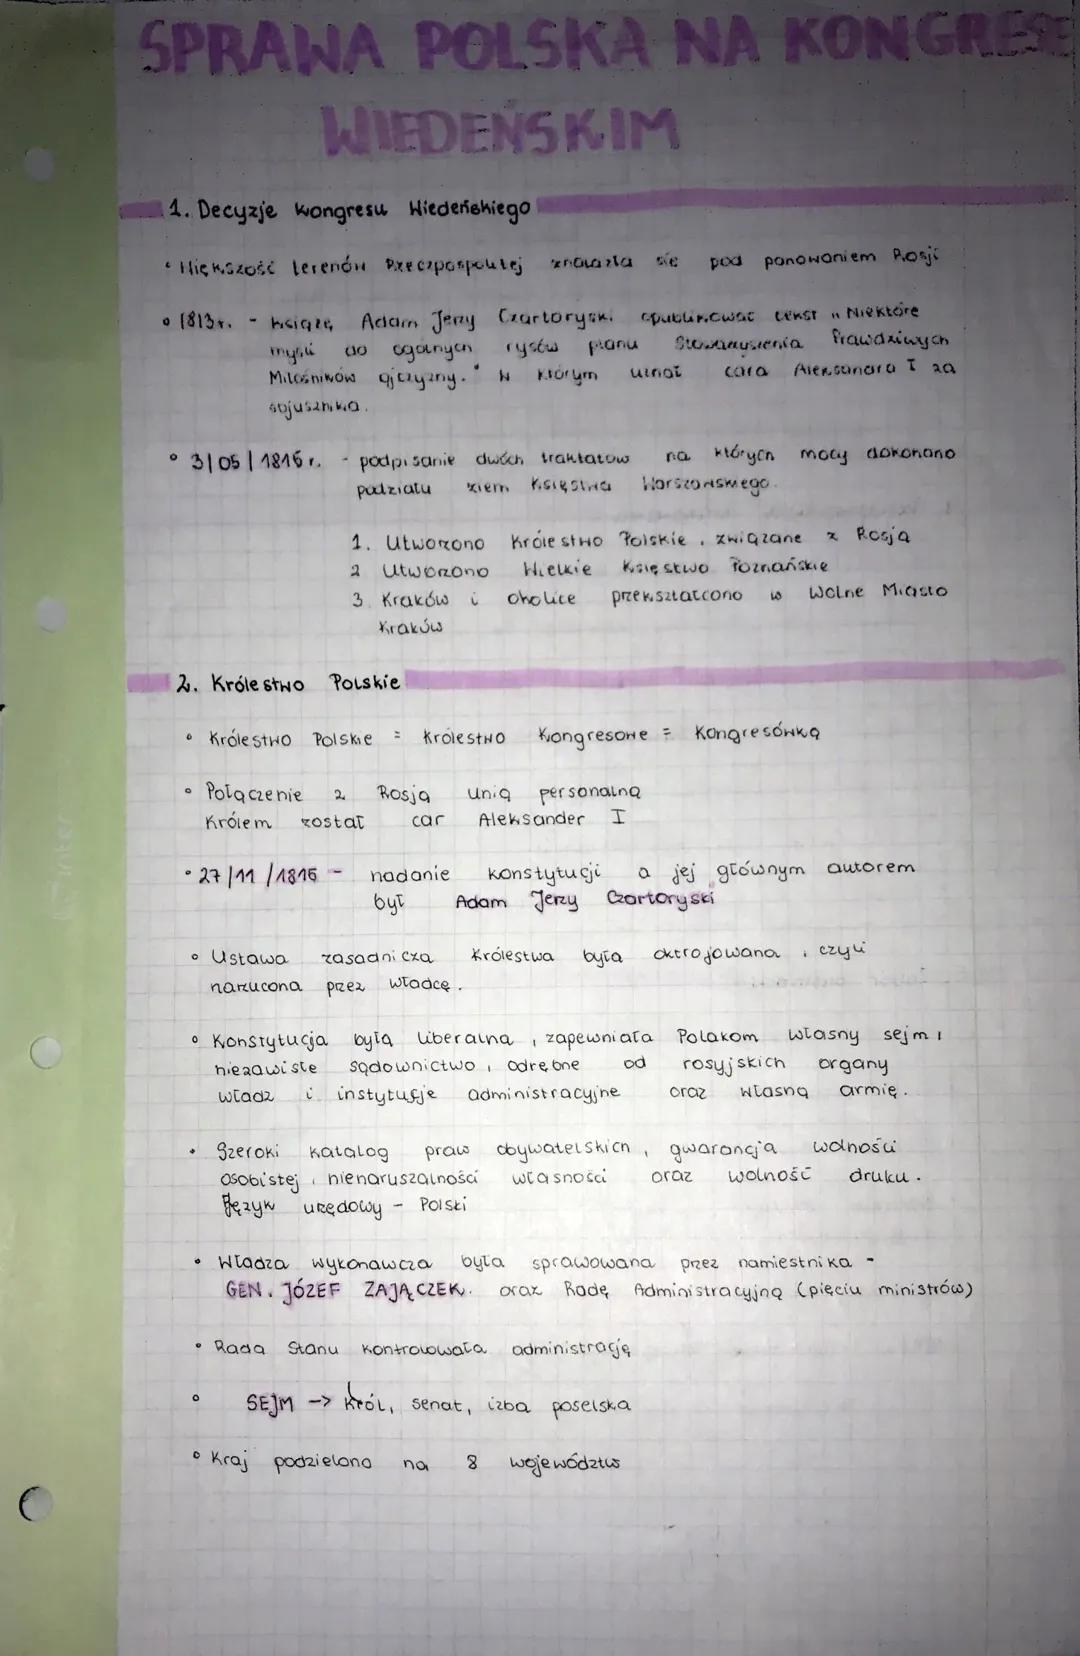 SPRAWA POLSKA NA KONGRESIE
WIEDEŃSKIM
1. Decyzje kongresu Wiedeńskiego
Większość terenów Rzeczpospolitej znalazła się pod panowaniem Rosji
1813r. - książę Adam Jerzy Czartoryski opublikował tekst "Niektóre
myśli do ogólnych rysów planu Stowarzyszenia Prawdziwych
Miłośników ojczyzny." w którym uznał cara Aleksandra I za
sojusznika.
3/05/1815 r. - podpisanie dwóch traktatów na których mocy dokonano
podziału ziem Księstwa Warszawskiego.
1. Utworzono Królestwo Polskie, związane z Rosją
2 Utworzono Wielkie Księstwo Poznańskie
3. Kraków i okolice przekształcono w Wolne Miasto
Kraków
2. Królestwo Polskie
Królestwo Polskie = Królestwo Kongresowe = Kongresówka
Połączenie z Rosją unią personalną
Królem został car Aleksander I
27/11/1815 - nadanie konstytucji a jej głównym autorem
był Adam Jerzy Czartoryski
Ustawa zasadnicza Królestwa była oktrojowana, czyli
narzucona przez władcę.
Konstytucja była liberalna, zapewniała Polakom własny sejm,
niezawisłe sądownictwo, odrębne od rosyjskich organy
władz i instytucje administracyjne oraz własną armię.
Szeroki katalog praw obywatelskich, gwarancja wolności
osobistej, nienaruszalności własności oraz wolność druku.
Język urzędowy - Polski
Władza wykonawcza była sprawowana przez namiestnika -
GEN. JÓZEF ZAJĄCZEK. oraz Radę Administracyjną (pięciu ministrów)
Rada Stanu kontrolowała administrację
SEJM -> król, senat, izba poselska
Kraj podzielono na 8 województw